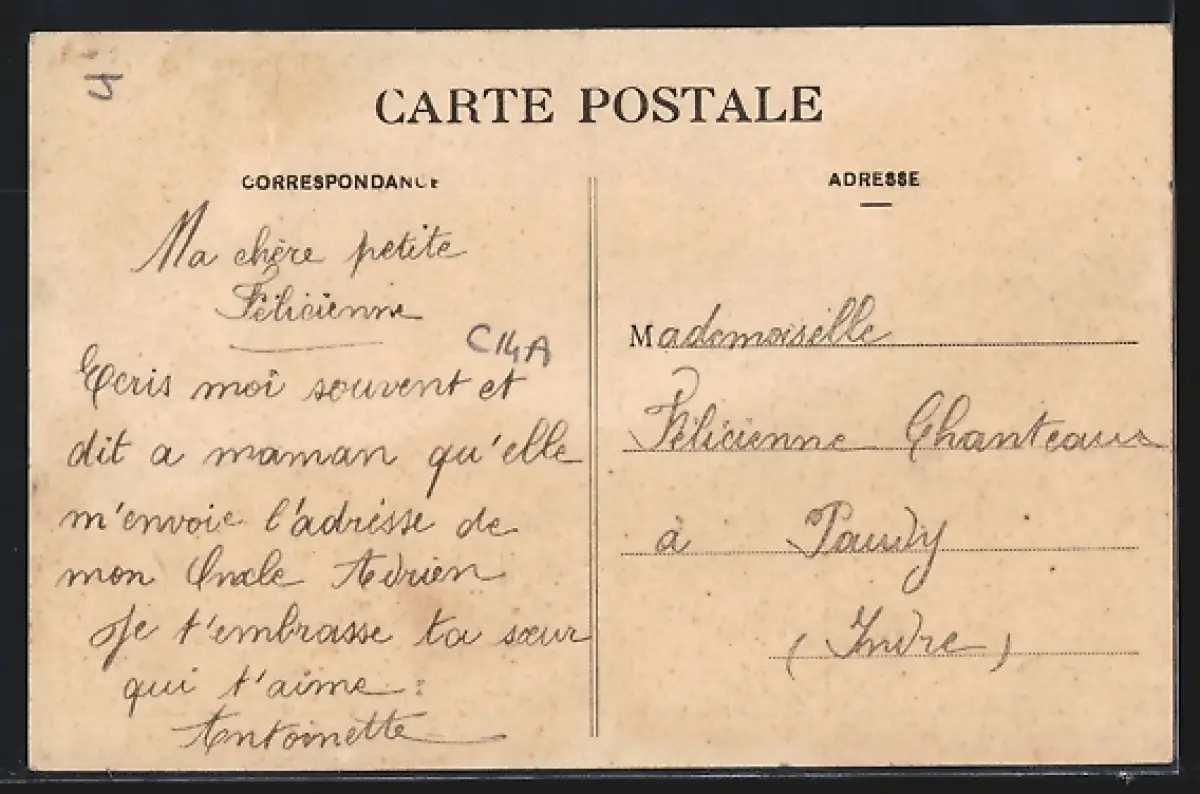 4
CARTE POSTALE
CORRESPONDANCE
Ma chère petite
Félicienne
C14A
Ecris moi souvent et
dit a maman qu'elle
m'envoie l'adrésse de
mon Oncle Adrien
Je t'embrasse ta sœur
qui t'aime :
Antoinette
ADRESSE
Mademoiselle
Félicienne Chanteaux
à Paudy
(Indre)